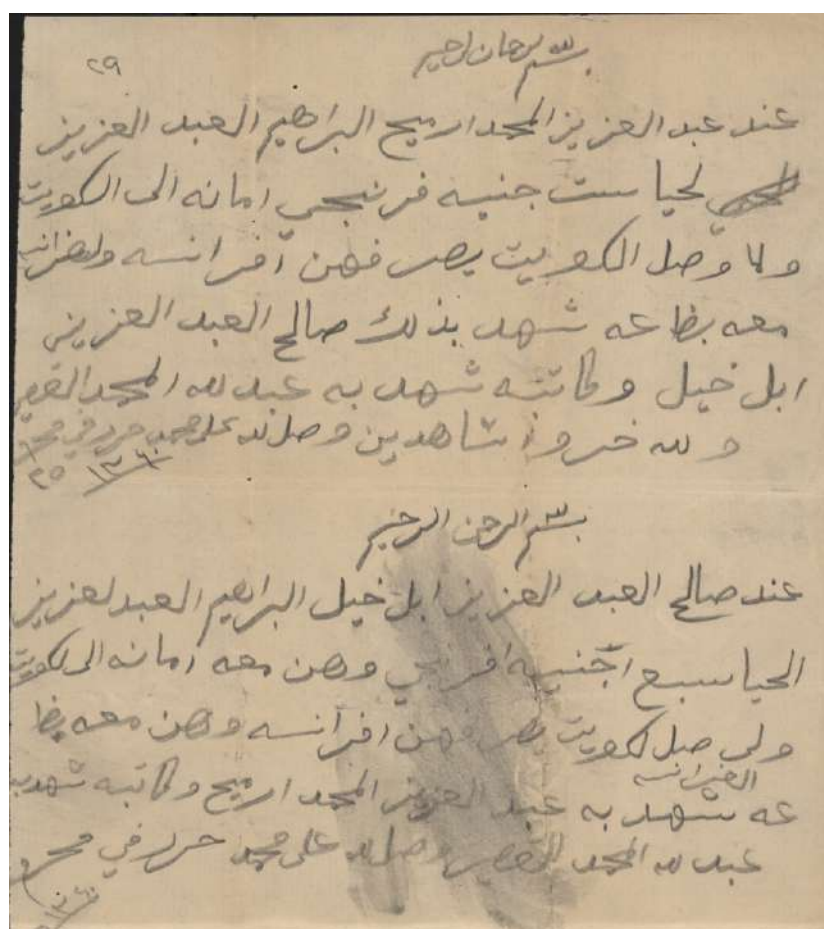 ٢٩
بسم لرحمان لرحيم
عند عبد العزيز المحمد ارميح البراهيم العبد العزيز
لحيا ست جنيه فرنجي امانه الى الكويت
ولا وصل الكويت يصرفهن افرانسه ولفرانسه
معه بظاعه شهد بذلك صالح العبد العزيز
ابل خيل وكاتبه شهد به عبد لله المحمد القصير
ولله خيرو شاهدين وصل لله على محمد حرر في محرم
٢٥ ١٣٦٠
بسم الرحمن الرحيم
عند صالح العبد العزيز ابل خيل البراهيم العبد لعزيز
الحيا سبع اجنيه افرنجي وهن معه امانه الى لكويت
ولى وصل لكويت يصرفهن افرانسه وهن معه بظا
الفرانسه
عه شهد به عبد العزيز المحمد ارميح وكاتبه شهد به
عبد لله المحمد القصير وصل لله على محمد حرر في محرم